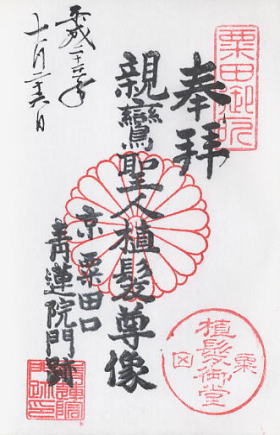 奉拝
親鸞聖人植髪尊像
京 粟田口
青蓮院門跡
平成二十六年
十一月二十六日
粟田御所
植髪御堂
粟
青蓮院
門跡印